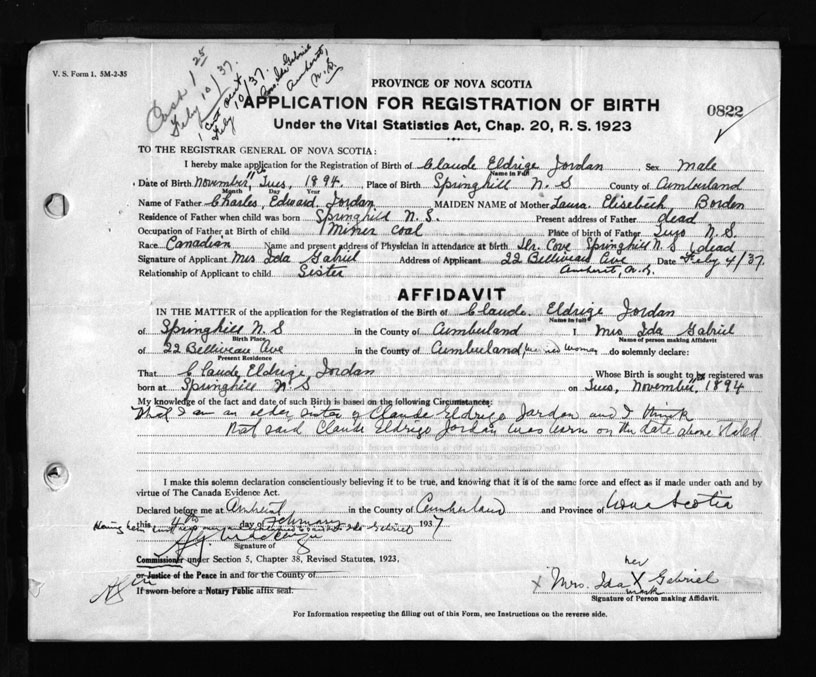 V. S. Form 1. 5M-2-35
Cash 1 25
Feby 10/37.
1 cert sent
Feby 10/37.
Mrs. Ida Gabriel
Amherst,
N.S.
PROVINCE OF NOVA SCOTIA
APPLICATION FOR REGISTRATION OF BIRTH
0822
Under the Vital Statistics Act, Chap. 20, R. S. 1923
TO THE REGISTRAR GENERAL OF NOVA SCOTIA:
I hereby make application for the Registration of Birth of Claude Eldrige Jordan Sex Male
Name in Full
Date of Birth November, Tues, 1894. Place of Birth Springhill N. S County of Cumberland
Month Day Year
Name of Father Charles, Edward Jordan MAIDEN NAME of Mother Laura Elisebeth Borden
Residence of Father when child was born Springhill N. S. Present address of Father dead
Occupation of Father at Birth of child Miner coal Place of birth of Father N. S.
Race Canadian Name and present address of Physician in attendance at birth Dr. Cove Springhill N. S (dead
Signature of Applicant Mrs Ida Gabriel Address of Applicant 22 Belliveau Ave Date Feby 4/37.
Relationship of Applicant to child Sister Amherst, N. S.
AFFIDAVIT
IN THE MATTER of the application for the Registration of the Birth of Claude Eldrige Jordan
Name in Full
of Springhill N. S in the County of Cumberland I Mrs Ida Gabriel
Birth Place Name of person making Affidavit
of 22 Belliveau Ave in the County of Cumberland, married woman do solemnly declare:
Present Residence
That Claude, Eldrige Jordan Whose Birth is sought to be registered was
born at Springhill N. S on Tues, November, 1894
My knowledge of the fact and date of such Birth is based on the following Circumstances:
That I am an older sister of Claude Eldrige Jordan and I think
that said Claude Eldrige Jordan was born on the date above stated
I make this solemn declaration conscientiously believing it to be true, and knowing that it is of the same force and effect as if made under oath and by
virtue of The Canada Evidence Act.
Declared before me at Amherst in the County of Cumberland and Province of Nova Scotia
this 4th day of February 1937
Having been first
Signature of
Commissioner under Section 5, Chapter 38, Revised Statutes, 1923,
or Justice of the Peace in and for the County of
If sworn before a Notary Public affix seal.
her
X Mrs. Ida X Gabriel
mark
Signature of Person making Affidavit.
For Information respecting the filling out of this Form, see Instructions on the reverse side.